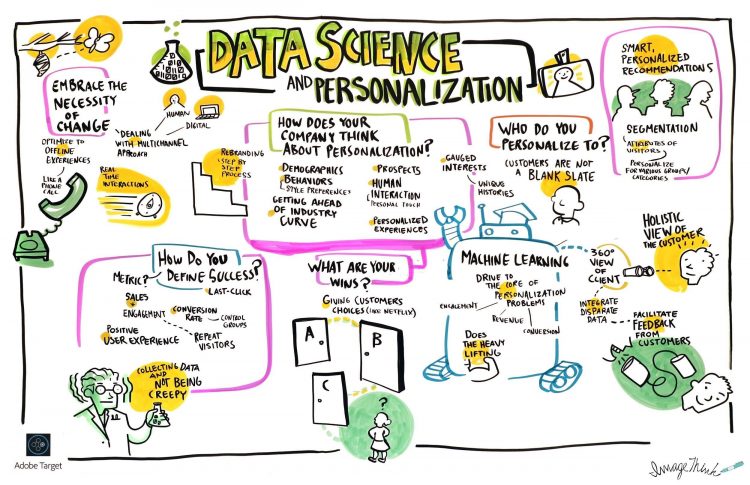 DATA SCIENCE
AND PERSONALIZATION
EMBRACE THE
NECESSITY
OF
CHANGE
HUMAN
DIGITAL
DEALING
WITH MULTICHANNEL
APPROACH
OPTIMIZE TO
OFFLINE
EXPERIENCES
LIKE A
PHONE
CALL
REAL
TIME
INTERACTIONS
REBRANDING
STEP BY
STEP
PROCESS
HOW DOES YOUR
COMPANY THINK
ABOUT PERSONALIZATION?
DEMOGRAPHICS
BEHAVIORS
STYLE PREFERENCES
GETTING AHEAD
OF INDUSTRY
CURVE
PROSPECTS
HUMAN
INTERACTION
PERSONAL TOUCH
PERSONALIZED
EXPERIENCES
GAUGED
INTERESTS
UNIQUE
HISTORIES
WHO DO YOU
PERSONALIZE TO?
CUSTOMERS ARE NOT
A BLANK SLATE
SMART,
PERSONALIZED
RECOMMENDATIONS
SEGMENTATION
ATTRIBUTES OF
VISITORS
PERSONALIZE
FOR VARIOUS GROUPS/
CATEGORIES
HOW DO YOU
DEFINE SUCCESS?
METRIC?
LAST-CLICK
SALES
+
ENGAGEMENT
CONVERSION
RATE
CONTROL
GROUPS
POSITIVE
USER EXPERIENCE
REPEAT
VISITORS
COLLECTING DATA
AND
NOT BEING
CREEPY
WHAT ARE YOUR
WINS?
GIVING CUSTOMERS
CHOICES (LIKE NETFLIX)
A
B
C
?
MACHINE LEARNING
DRIVE TO
THE CORE OF
PERSONALIZATION
PROBLEMS
ENGAGEMENT
REVENUE
CONVERSION
DOES
THE HEAVY
LIFTING
360°
VIEW
OF
CLIENT
HOLISTIC
VIEW OF
THE CUSTOMER
INTEGRATE
DISPARATE
DATA
FACILITATE
FEEDBACK
FROM
CUSTOMERS
Adobe Target
ImageThink